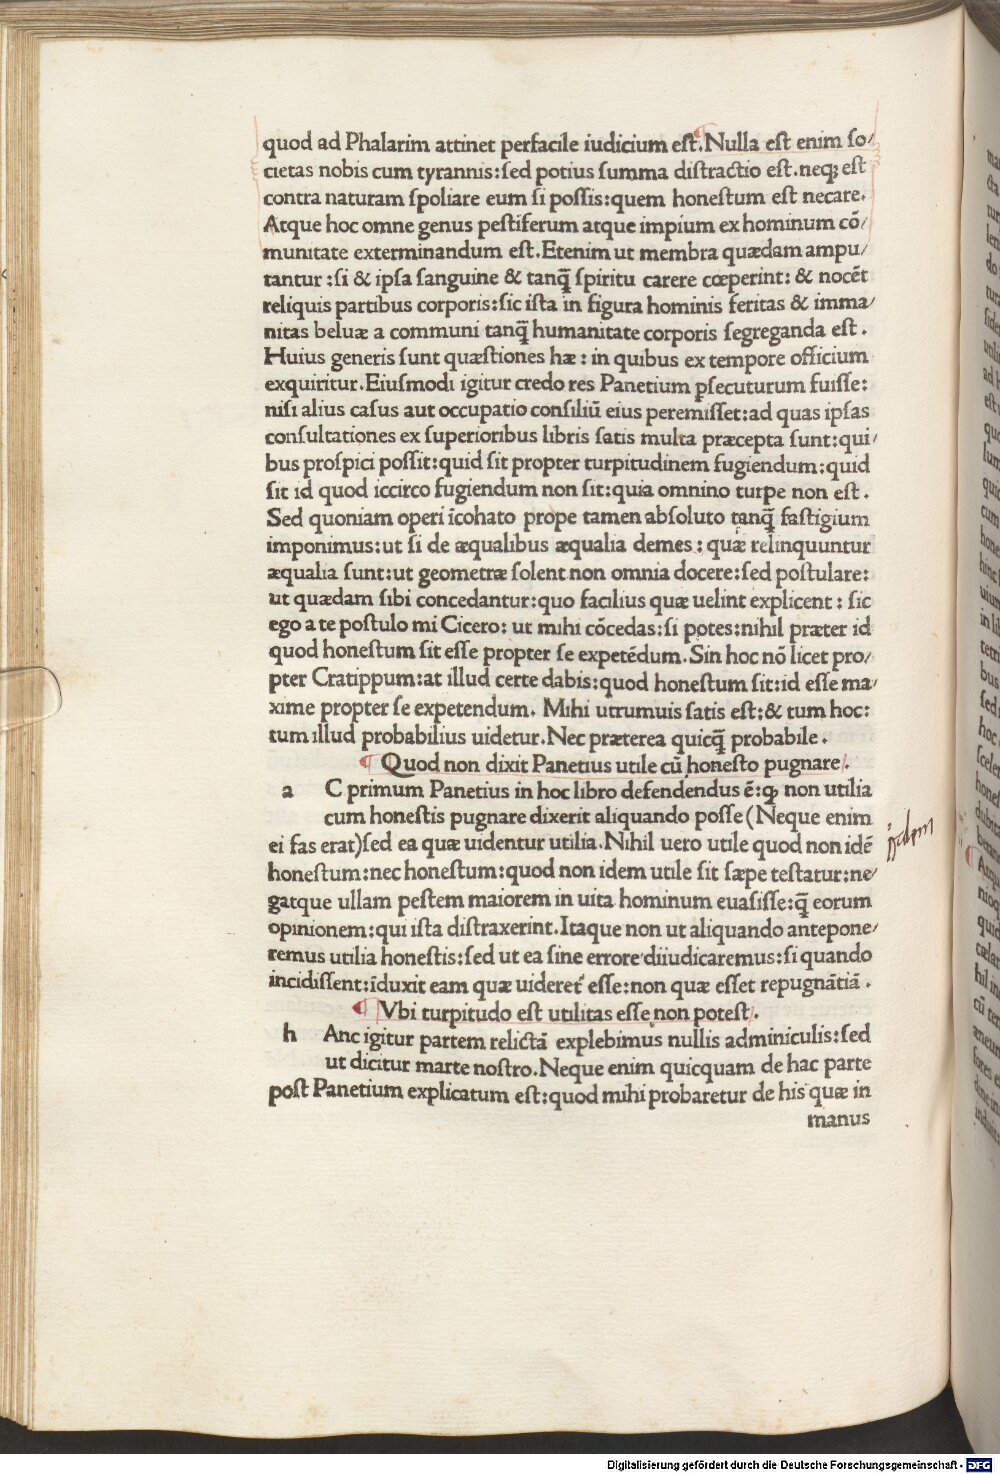 quod ad Phalarim attinet perfacile iudicium eſt. Nulla eſt enim ſo/
cietas nobis cum tyrannis:ſed potius ſumma diſtractio eſt.neqꝫ eſt
contra naturam ſpoliare eum ſi poſſis:quem honeſtum eſt necare.
Atque hoc omne genus peſtiferum atque impium ex hominum cō/
munitate exterminandum eſt.Etenim ut membra quædam ampu/
tantur:ſi & ipſa ſanguine & tanq̄ ſpiritu carere cœperint: & nocēt
reliquis partibus corporis:ſic iſta in figura hominis feritas & imma/
nitas beluæ a communi tanq̄ humanitate corporis ſegreganda eſt.
Huius generis ſunt quæſtiones hæ: in quibus ex tempore officium
exquiritur.Eiuſmodi igitur credo res Panetium ꝑſecuturum fuiſſe:
niſi alius caſus aut occupatio conſiliū eius peremiſſet:ad quas ipſas
conſultationes ex ſuperioribus libris ſatis multa præcepta ſunt:qui/
bus proſpici poſſit:quid ſit propter turpitudinem fugiendum:quid
ſit id quod iccirco fugiendum non ſit:quia omnino turpe non eſt.
Sed quoniam operi īcohato prope tamen abſoluto tanq̄ faſtigium
imponimus:ut ſi de æqualibus æqualia demes: quæ relinquuntur
æqualia ſunt:ut geometræ ſolent non omnia docere:ſed poſtulare:
ut quædam ſibi concedantur:quo facilius quæ uelint explicent: ſic
ego a te poſtulo mi Cicero: ut mihi cōcedas:ſi potes:nihil præter id
quod honeſtum ſit eſſe propter ſe expetēdum.Sin hoc nō licet pro/
pter Cratippum:at illud certe dabis:quod honeſtum ſit:id eſſe ma/
xime propter ſe expetendum. Mihi utrumuis ſatis eſt:& tum hoc:
tum illud probabilius uidetur.Nec præterea quicq̄ probabile.
¶ Quod non dixit Panetius utile cū honeſto pugnare.
a C primum Panetius in hoc libro defendendus ē:ꝙ non utilia
cum honeſtis pugnare dixerit aliquando poſſe(Neque enim
ei fas erat)ſed ea quæ uidentur utilia.Nihil uero utile quod non idē
honeſtum:nec honeſtum:quod non idem utile ſit ſæpe teſtatur:ne/
gatque ullam peſtem maiorem in uita hominum euaſiſſe:q̄ eorum
opinionem:qui iſta diſtraxerint.Itaque non ut aliquando antepone/
remus utilia honeſtis:ſed ut ea ſine errore diiudicaremus:ſi quando
incidiſſent:īduxit eam quæ uideret᷑ eſſe:non quæ eſſet repugnātiā.
¶ Vbi turpitudo eſt utilitas eſſe non poteſt.
h Anc igitur partem relictā explebimus nullis adminiculis:ſed
ut dicitur marte noſtro.Neque enim quicquam de hac parte
poſt Panetium explicatum eſt:quod mihi probaretur de his quæ in
manus
Digitalisierung gefördert durch die Deutsche Forschungsgemeinschaft - DFG